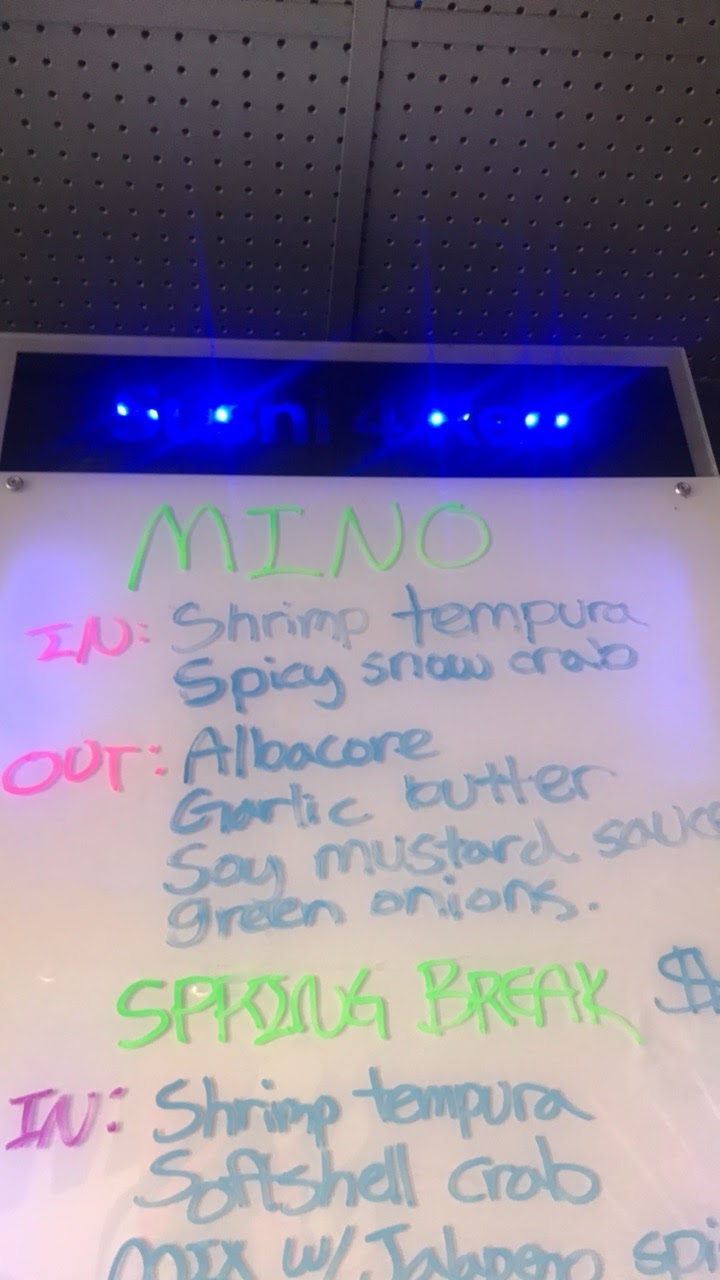 Sushi 4 You
MINO
IN: Shrimp tempura
Spicy snow crab
OUT: Albacore
Garlic butter
Soy mustard sauce
green onions.
SPRING BREAK $
IN: Shrimp tempura
Softshell crab
mix w/ Jalapeno spi